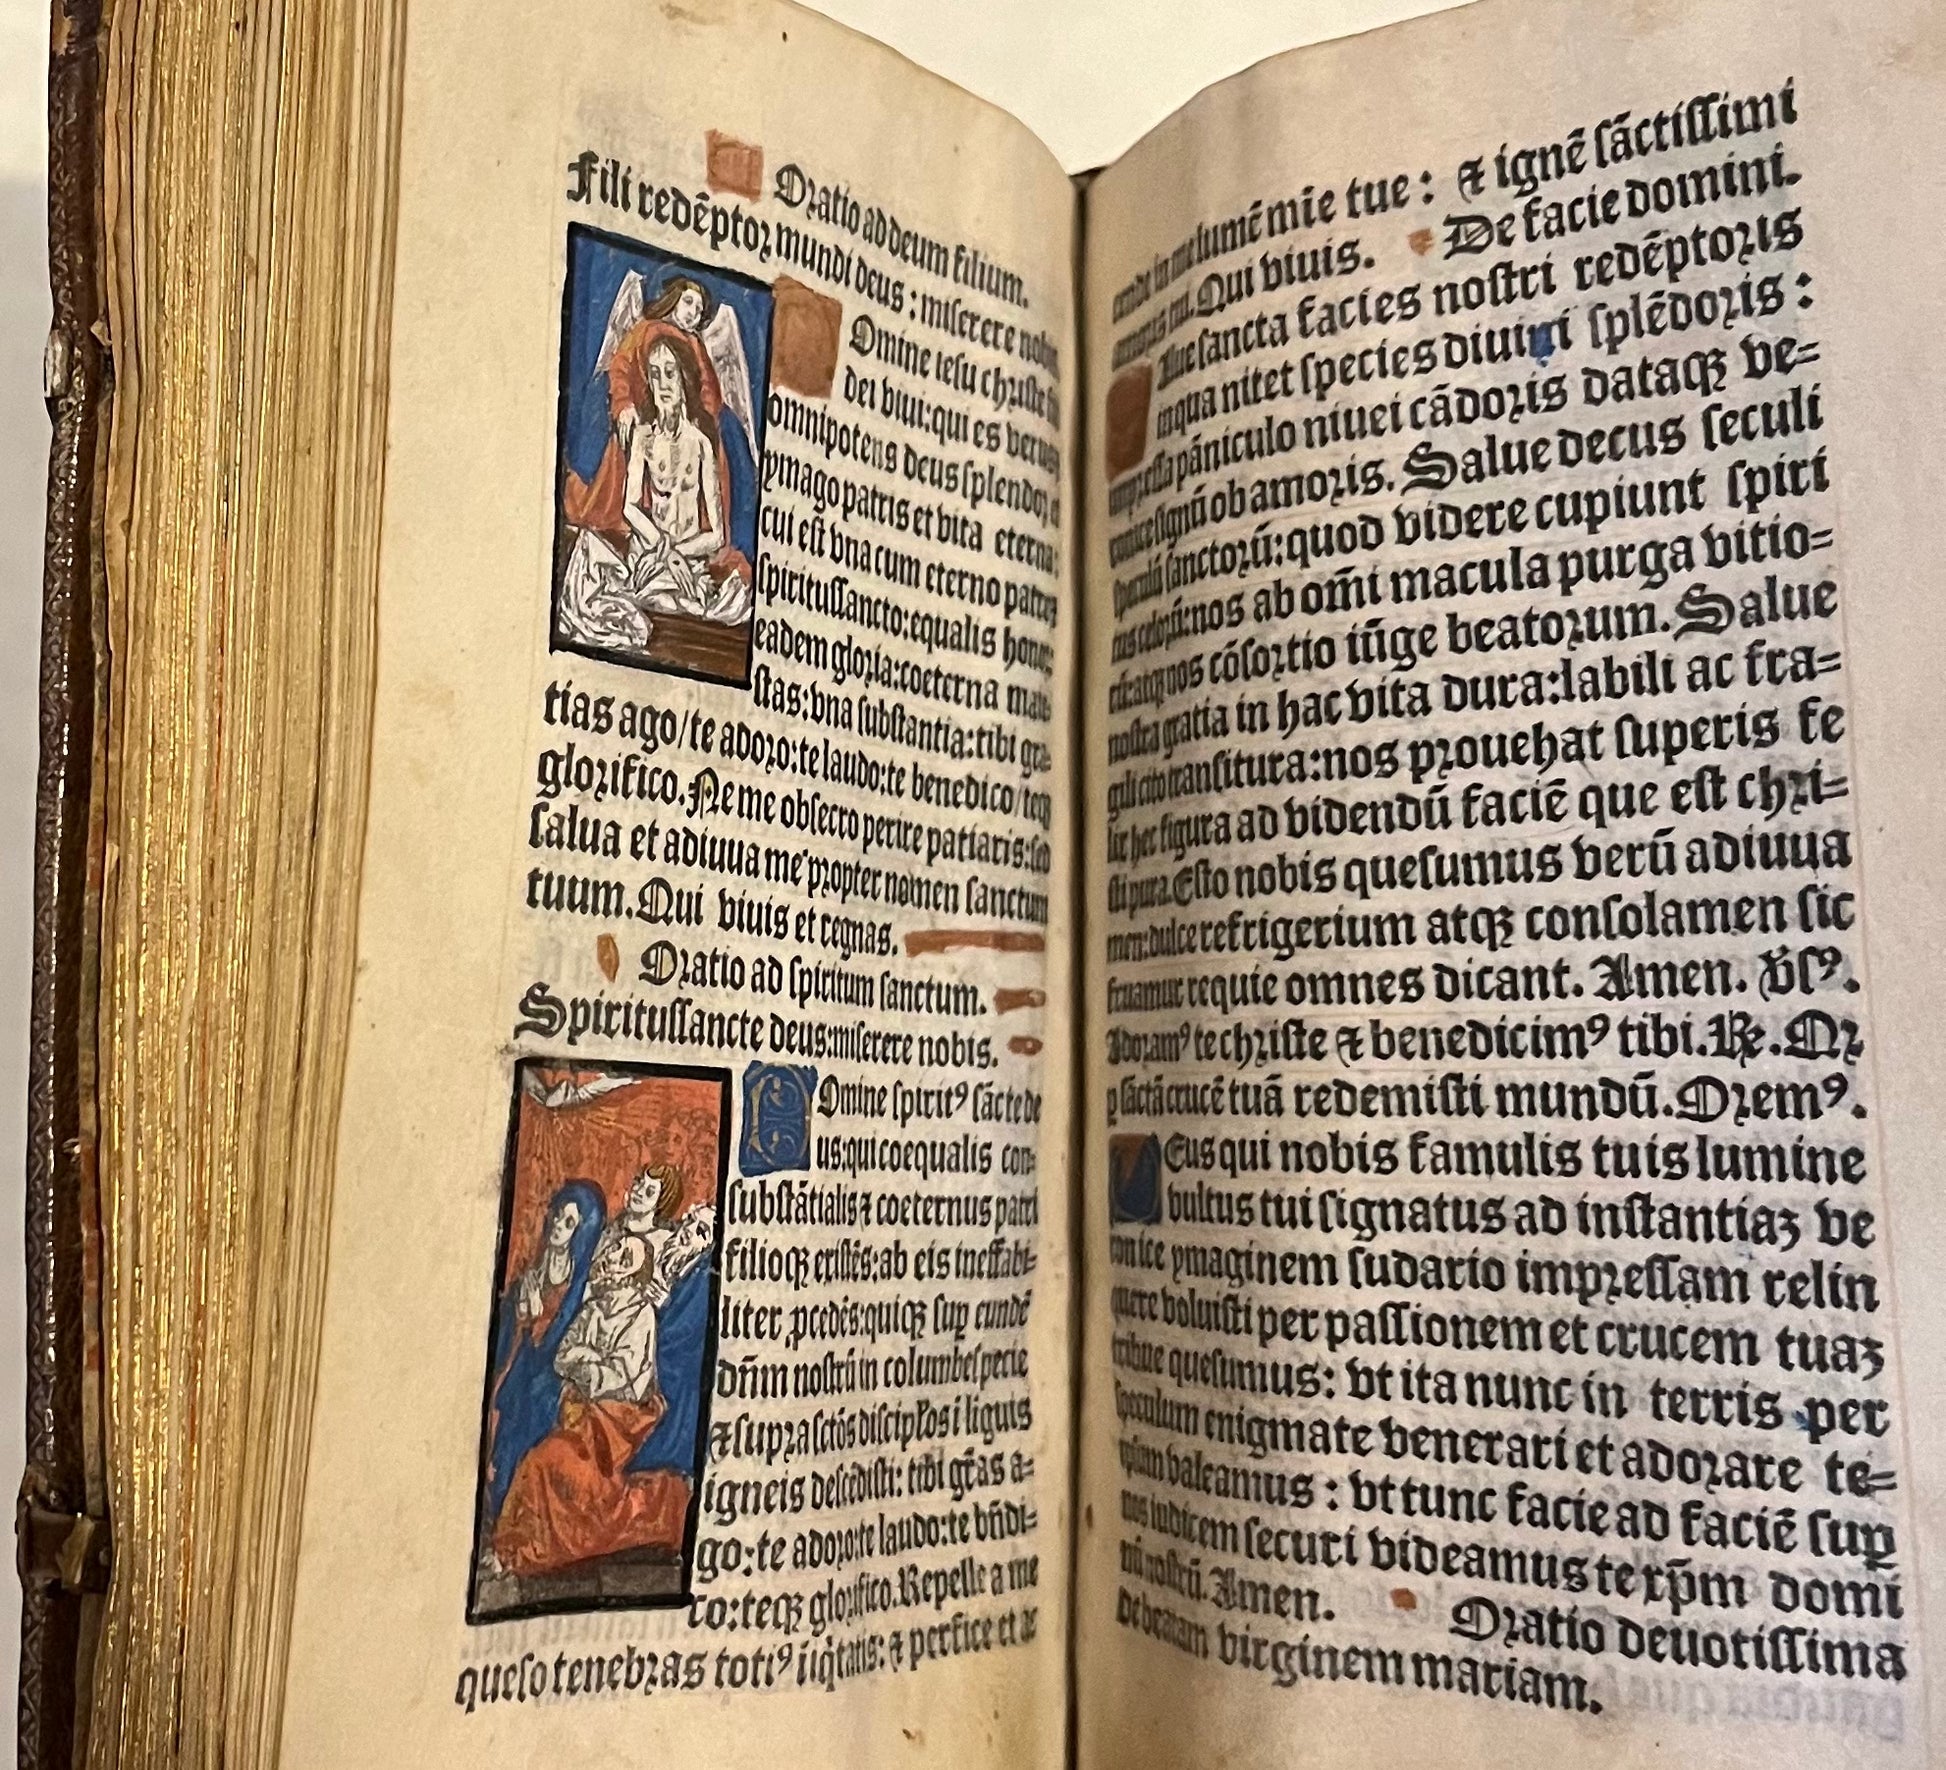 Oratio ad deum filium.
Fili redēptor mundi deus : miserere nobis
Omine iesu christe fili
dei viui: qui es verus
omnipotens deus splendor et
ymago patris et vita eterna:
cui est vna cum eterno patre
spiritussancto: equalis honor:
eadem gloria: coeterna maie
stas: vna substantia: tibi gra
tias ago/te adoro: te laudo: te benedico/teqꝫ
glorifico. Ne me obsecro perire patiaris: sed
salua et adiuua me propter nomen sanctum
tuum. Qui viuis et regnas.
Oratio ad spiritum sanctum.
Spiritussancte deus: miserere nobis.
Omine spiritꝰ sācte de
us: qui coequalis con-
substātialis ⁊ coeternus patri
filioqꝫ existēs: ab eis ineffabi-
liter ꝓcedēs: quiqꝫ suꝑ eundē
dn̄m nostrū in columbe specie
⁊ supra sctōs discipl̄os i liguis
igneis descēdisti: tibi gr̄as a-
go: te adoro: te laudo: te bn̄di-
co: teqꝫ glorifico. Repelle a me
queso tenebras totiꝰ iiq̇tatis: ⁊ perfice et ac
in me lumē mīe tue : ⁊ ignē sāctissimi
tui. Qui viuis. De facie domini.
Alue sancta facies nostri redēptoris
in qua nitet species diuini splēdoris :
impressa pāniculo niuei cādoris dataqꝫ ve-
ronice signū ob amoris. Salue decus seculi
speculū sanctorū: quod videre cupiunt spiri
tus celoꝝ: nos ab om̄i macula purga vitio-
rū: atqꝫ nos cōsortio iūge beatorum. Salue
nostra gratia in hac vita dura: labili ac fra-
gili cito transitura: nos prouehat superis fe
lix hec figura ad videndū faciē que est chri-
sti pura. Esto nobis quesumus verū adiuua
men: dulce refrigerium atqꝫ consolamen sic
fruamur requie omnes dicant. Amen. v̄sꝰ.
Adoramꝰ te christe ⁊ benedicimꝰ tibi. ℟. Qꝛ
ꝑ sāctā crucē tuā redemisti mundū. Oremꝰ.
Eus qui nobis famulis tuis lumine
vultus tui signatus ad instantiaꝫ ve
ronice ymaginem sudario impressam relin
quere voluisti per passionem et crucem tuaꝫ
tribue quesumus: vt ita nunc in terris per
speculum enigmate venerari et adorare te-
ipsum valeamus : vt tunc facie ad faciē suꝑ
nos iudicem securi videamus te xp̄m domi
nū nostrū. Amen. Oratio deuotissima
De beatam virginem mariam.